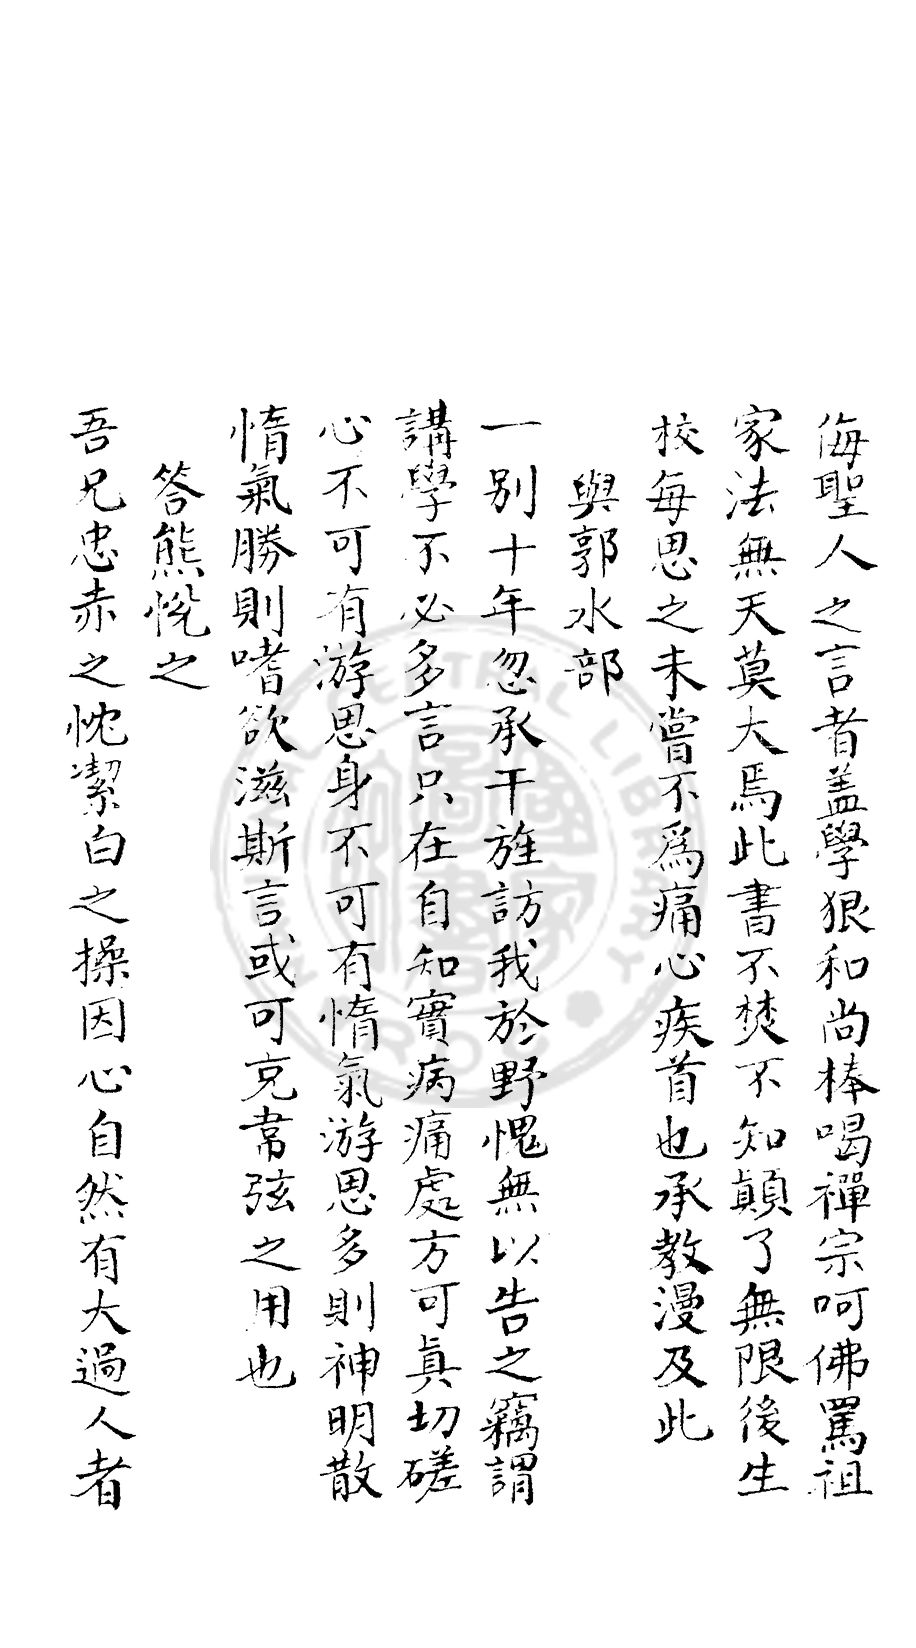 侮聖人之言者盖學狠和尚棒喝禪宗呵佛罵祖
家法無天莫大焉此書不焚不知顛了無限後生
校每思之未嘗不爲痛心疾首也承教漫及此
與郭水部
一别十年忽承干旌訪我於野愧無以告之竊謂
講學不必多言只在自知實病痛處方可真切磋
心不可有游思身不可有惰氣游思多則神明散
惰氣勝則嗜欲滋斯言或可克韋弦之用也
答熊恱之
吾兄忠赤之忱潔白之操因心自然有大過人者
CENTRAL LIBRARY